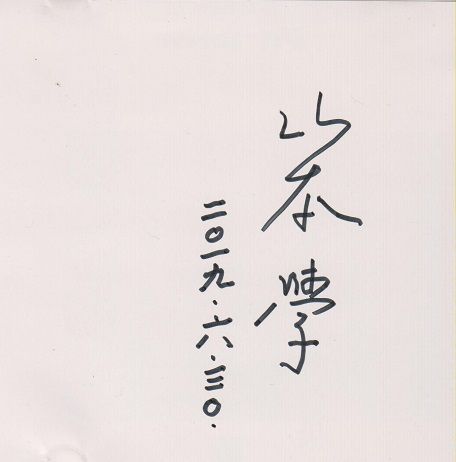 山本學
二〇一九・六・三〇・